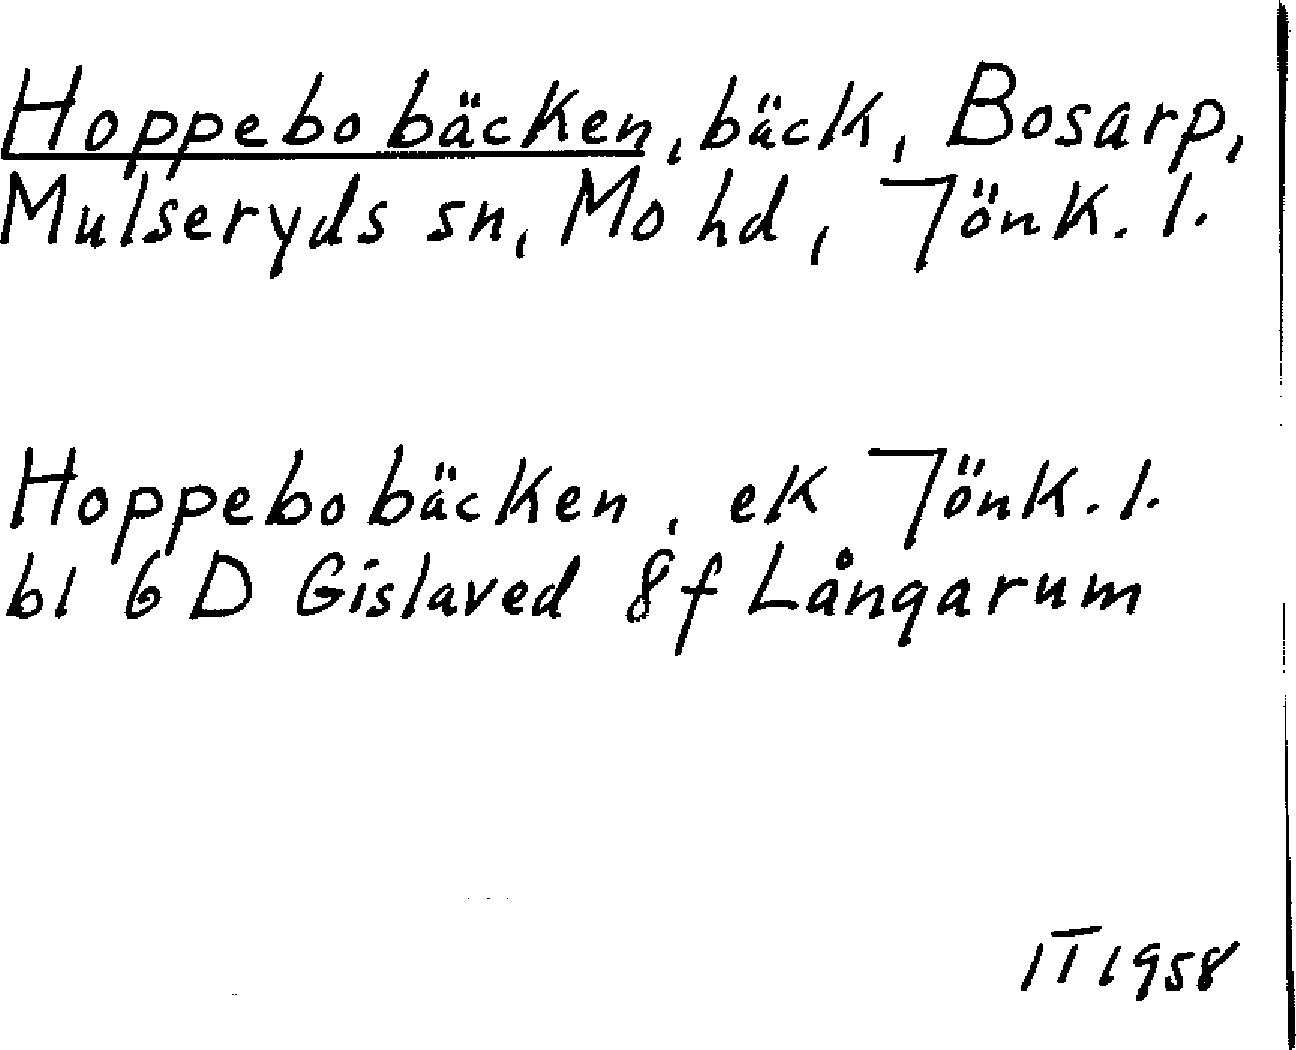 Hoppebobäcken, bäck, Bosarp,
Mulseryds sn, Mo hd, Jönk. l.
Hoppebobäcken, ek Jönk. l.
bl 6 D Gislaved 8f Långarum
IT 1958